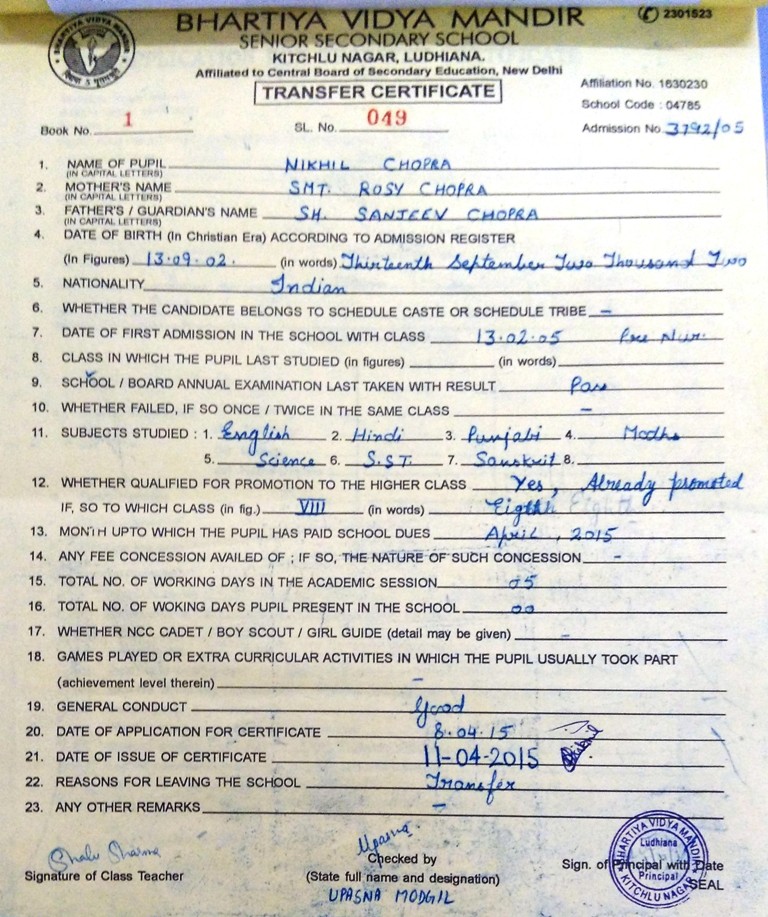 BHARTIYA VIDYA MANDIR
2301523
SENIOR SECONDARY SCHOOL
KITCHLU NAGAR, LUDHIANA.
Affiliated to Central Board of Secondary Education, New Delhi
Affiliation No. 1630230
TRANSFER CERTIFICATE
School Code : 04785
Book No. 1 SL. No. 049 Admission No. 3792/05
1. NAME OF PUPIL NIKHIL CHOPRA
(IN CAPITAL LETTERS)
2. MOTHER'S NAME SMT. ROSY CHOPRA
(IN CAPITAL LETTERS)
3. FATHER'S / GUARDIAN'S NAME SH. SANJEEV CHOPRA
(IN CAPITAL LETTERS)
4. DATE OF BIRTH (In Christian Era) ACCORDING TO ADMISSION REGISTER
(In Figures) 13.09.02. (in words) Thirteenth September Two Thousand Two
5. NATIONALITY Indian
6. WHETHER THE CANDIDATE BELONGS TO SCHEDULE CASTE OR SCHEDULE TRIBE -
7. DATE OF FIRST ADMISSION IN THE SCHOOL WITH CLASS 13.02.05 Pre Nur.
8. CLASS IN WHICH THE PUPIL LAST STUDIED (in figures) (in words)
9. SCHOOL / BOARD ANNUAL EXAMINATION LAST TAKEN WITH RESULT Pass
10. WHETHER FAILED, IF SO ONCE / TWICE IN THE SAME CLASS -
11. SUBJECTS STUDIED : 1. English 2. Hindi 3. Punjabi 4. Maths
5. Science 6. S.ST. 7. Sanskrit 8.
12. WHETHER QUALIFIED FOR PROMOTION TO THE HIGHER CLASS Yes, Already promoted
IF, SO TO WHICH CLASS (in fig.) VIII (in words) Eighth
13. MONTH UPTO WHICH THE PUPIL HAS PAID SCHOOL DUES April, 2015
14. ANY FEE CONCESSION AVAILED OF ; IF SO, THE NATURE OF SUCH CONCESSION -
15. TOTAL NO. OF WORKING DAYS IN THE ACADEMIC SESSION 05
16. TOTAL NO. OF WOKING DAYS PUPIL PRESENT IN THE SCHOOL 00
17. WHETHER NCC CADET / BOY SCOUT / GIRL GUIDE (detail may be given) -
18. GAMES PLAYED OR EXTRA CURRICULAR ACTIVITIES IN WHICH THE PUPIL USUALLY TOOK PART
(achievement level therein) -
19. GENERAL CONDUCT Good
20. DATE OF APPLICATION FOR CERTIFICATE 8.04.15
21. DATE OF ISSUE OF CERTIFICATE 11-04-2015
22. REASONS FOR LEAVING THE SCHOOL Transfer
23. ANY OTHER REMARKS -
Shalu Sharma Upasna
Signature of Class Teacher Checked by Sign. of Principal with Date
(State full name and designation) SEAL
UPASNA MODGIL
BHARTIYA VIDYA MANDIR
Ludhiana
Principal
KITCHLU NAGAR